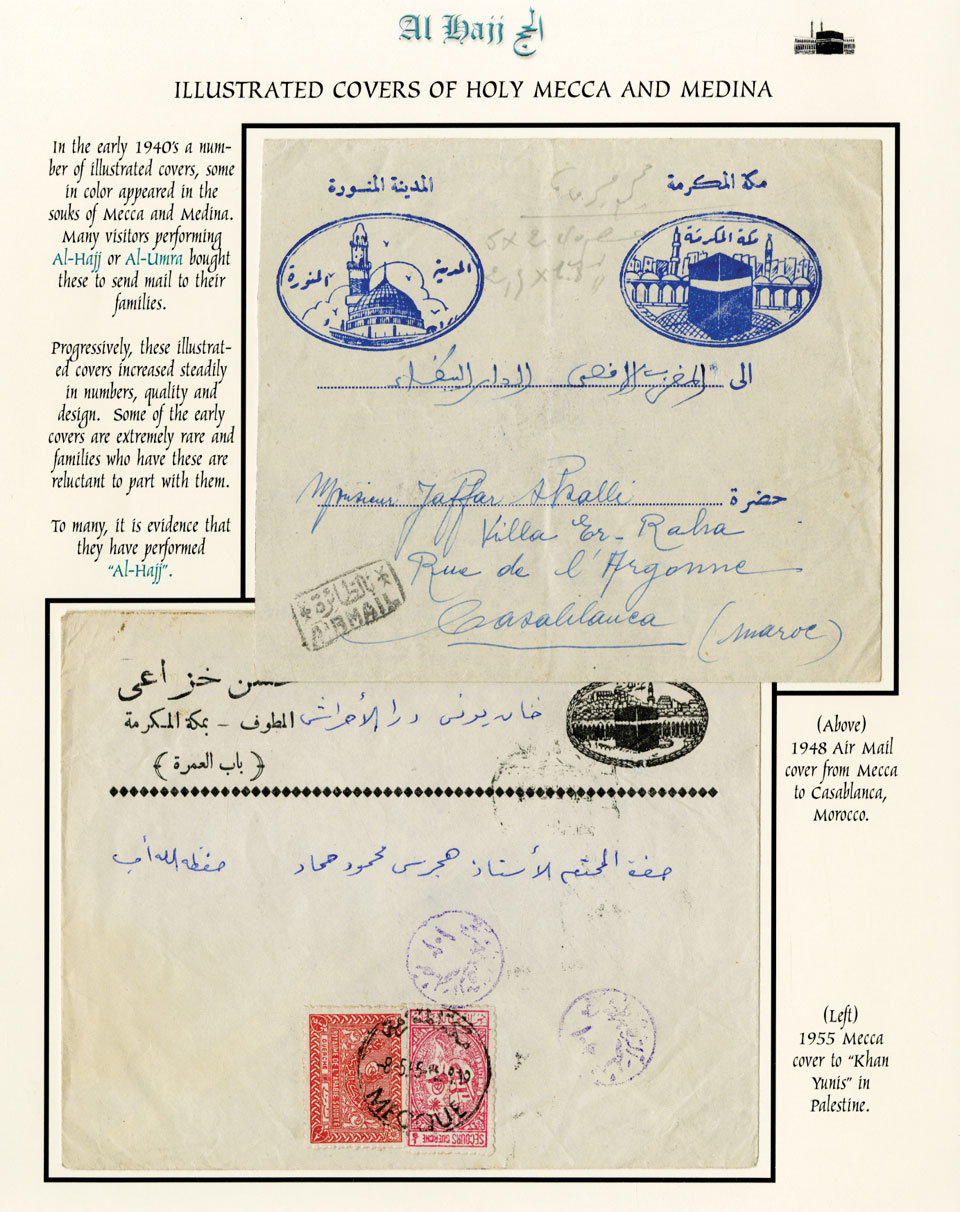 Al Hajj الحج
ILLUSTRATED COVERS OF HOLY MECCA AND MEDINA
In the early 1940's a num-
ber of illustrated covers, some
in color appeared in the
souks of Mecca and Medina.
Many visitors performing
Al-Hajj or Al-Umra bought
these to send mail to their
families.
Progressively, these illustrat-
ed covers increased steadily
in numbers, quality and
design. Some of the early
covers are extremely rare and
families who have these are
reluctant to part with them.
To many, it is evidence that
they have performed
"Al-Hajj".
مكة المكرمة
المدينة المنورة
مكة المكرمة
المدينة المنورة
الى المغرب الاقصى الدار البيضاء
حضرة Monsieur Jaffar
Villa Er-Raha
Rue de l'Argonne
Casablanca (Maroc)
بالطائرة
AIRMAIL
خزاعي
المطوف - بمكة المكرمة
خان يونس
(باب العمرة)
الأستاذ محمود حماد
حفظه الله
MECQUE
SECOURS GUERCHE
GUERCHE
(Above)
1948 Air Mail
cover from Mecca
to Casablanca,
Morocco.
(Left)
1955 Mecca
cover to "Khan
Yunis" in
Palestine.